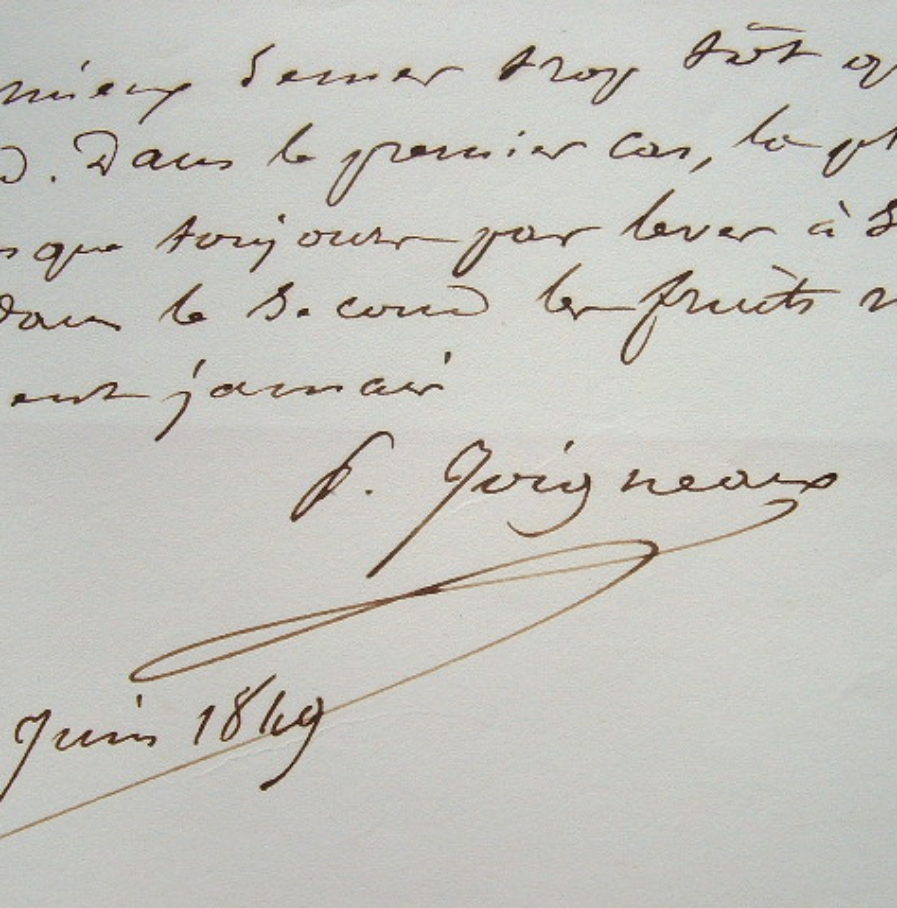 mieux semer trop tôt q
d. Dans le premier cas, la pl
sque toujours par lever à s
dans le second les fruits n
ent jamais
P. Joigneaux
Juin 1849